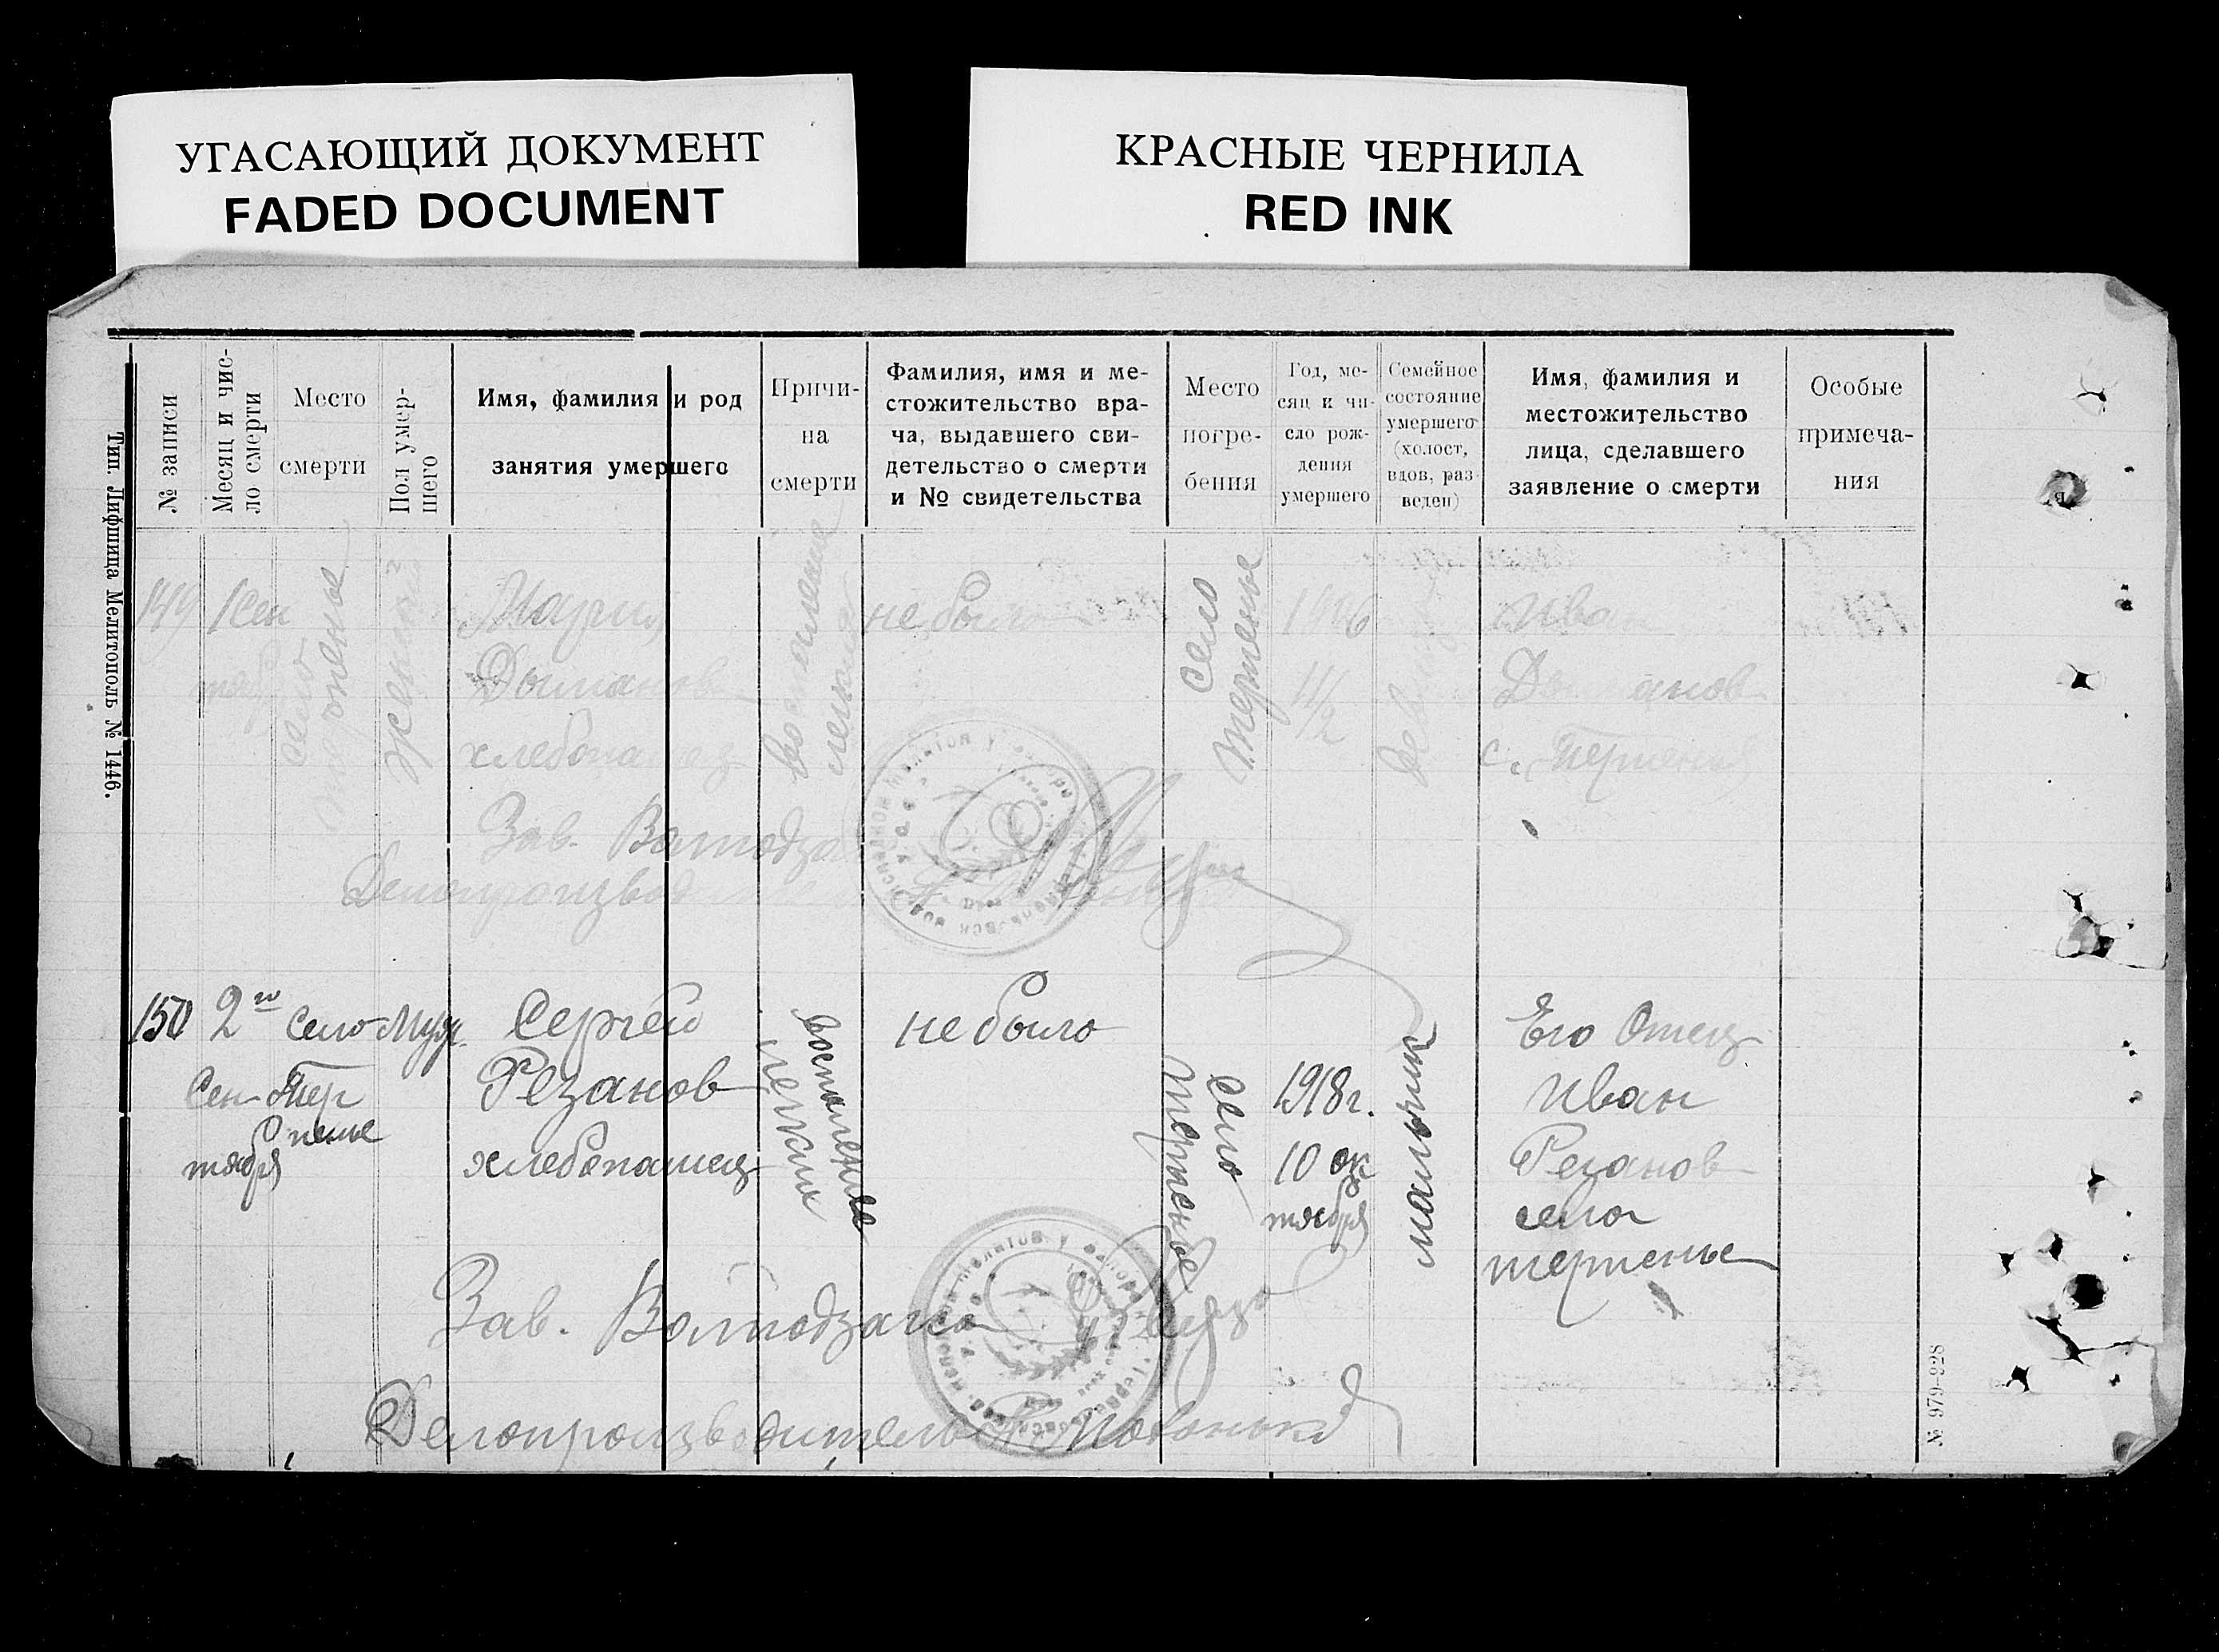 УГАСАЮЩИЙ ДОКУМЕНТ
FADED DOCUMENT
КРАСНЫЕ ЧЕРНИЛА
RED INK
Тип. Лифшица Мелитополь № 1446.
№ записи
Месяц и чис-
ло смерти
Место
смерти
Пол умер-
шего
Имя, фамилия и род
занятия умершего
Причи-
на
смерти
Фамилия, имя и ме-
стожительство вра-
ча, выдавшего сви-
детельство о смерти
и № свидетельства
Место
погре-
бения
Год, ме-
сяц и чи-
сло рож-
дения
умершего
Семейное
состояние
умершего
(холост,
вдов, раз-
веден)
Имя, фамилия и
местожительство
лица, сделавшего
заявление о смерти
Особые
примеча-
ния
149
1 Сен
тяб
село
терпенье
женский
Мария
хлебопашец
воспаление
легких
не было
село
терпенье
11/2
Иван
с. терпенье
Зав.
150
2го
Сен
тября
село
Тер
пенье
Муж.
Сергей
Резанов
хлебопашец
воспаление
легких
не было
село
терпенье
1918 г.
10 ок
тября
мальчик
Его Отец
Иван
Резанов
села
терпенье
Зав. Волподзагса
Делопроизводитель
№ 979-928